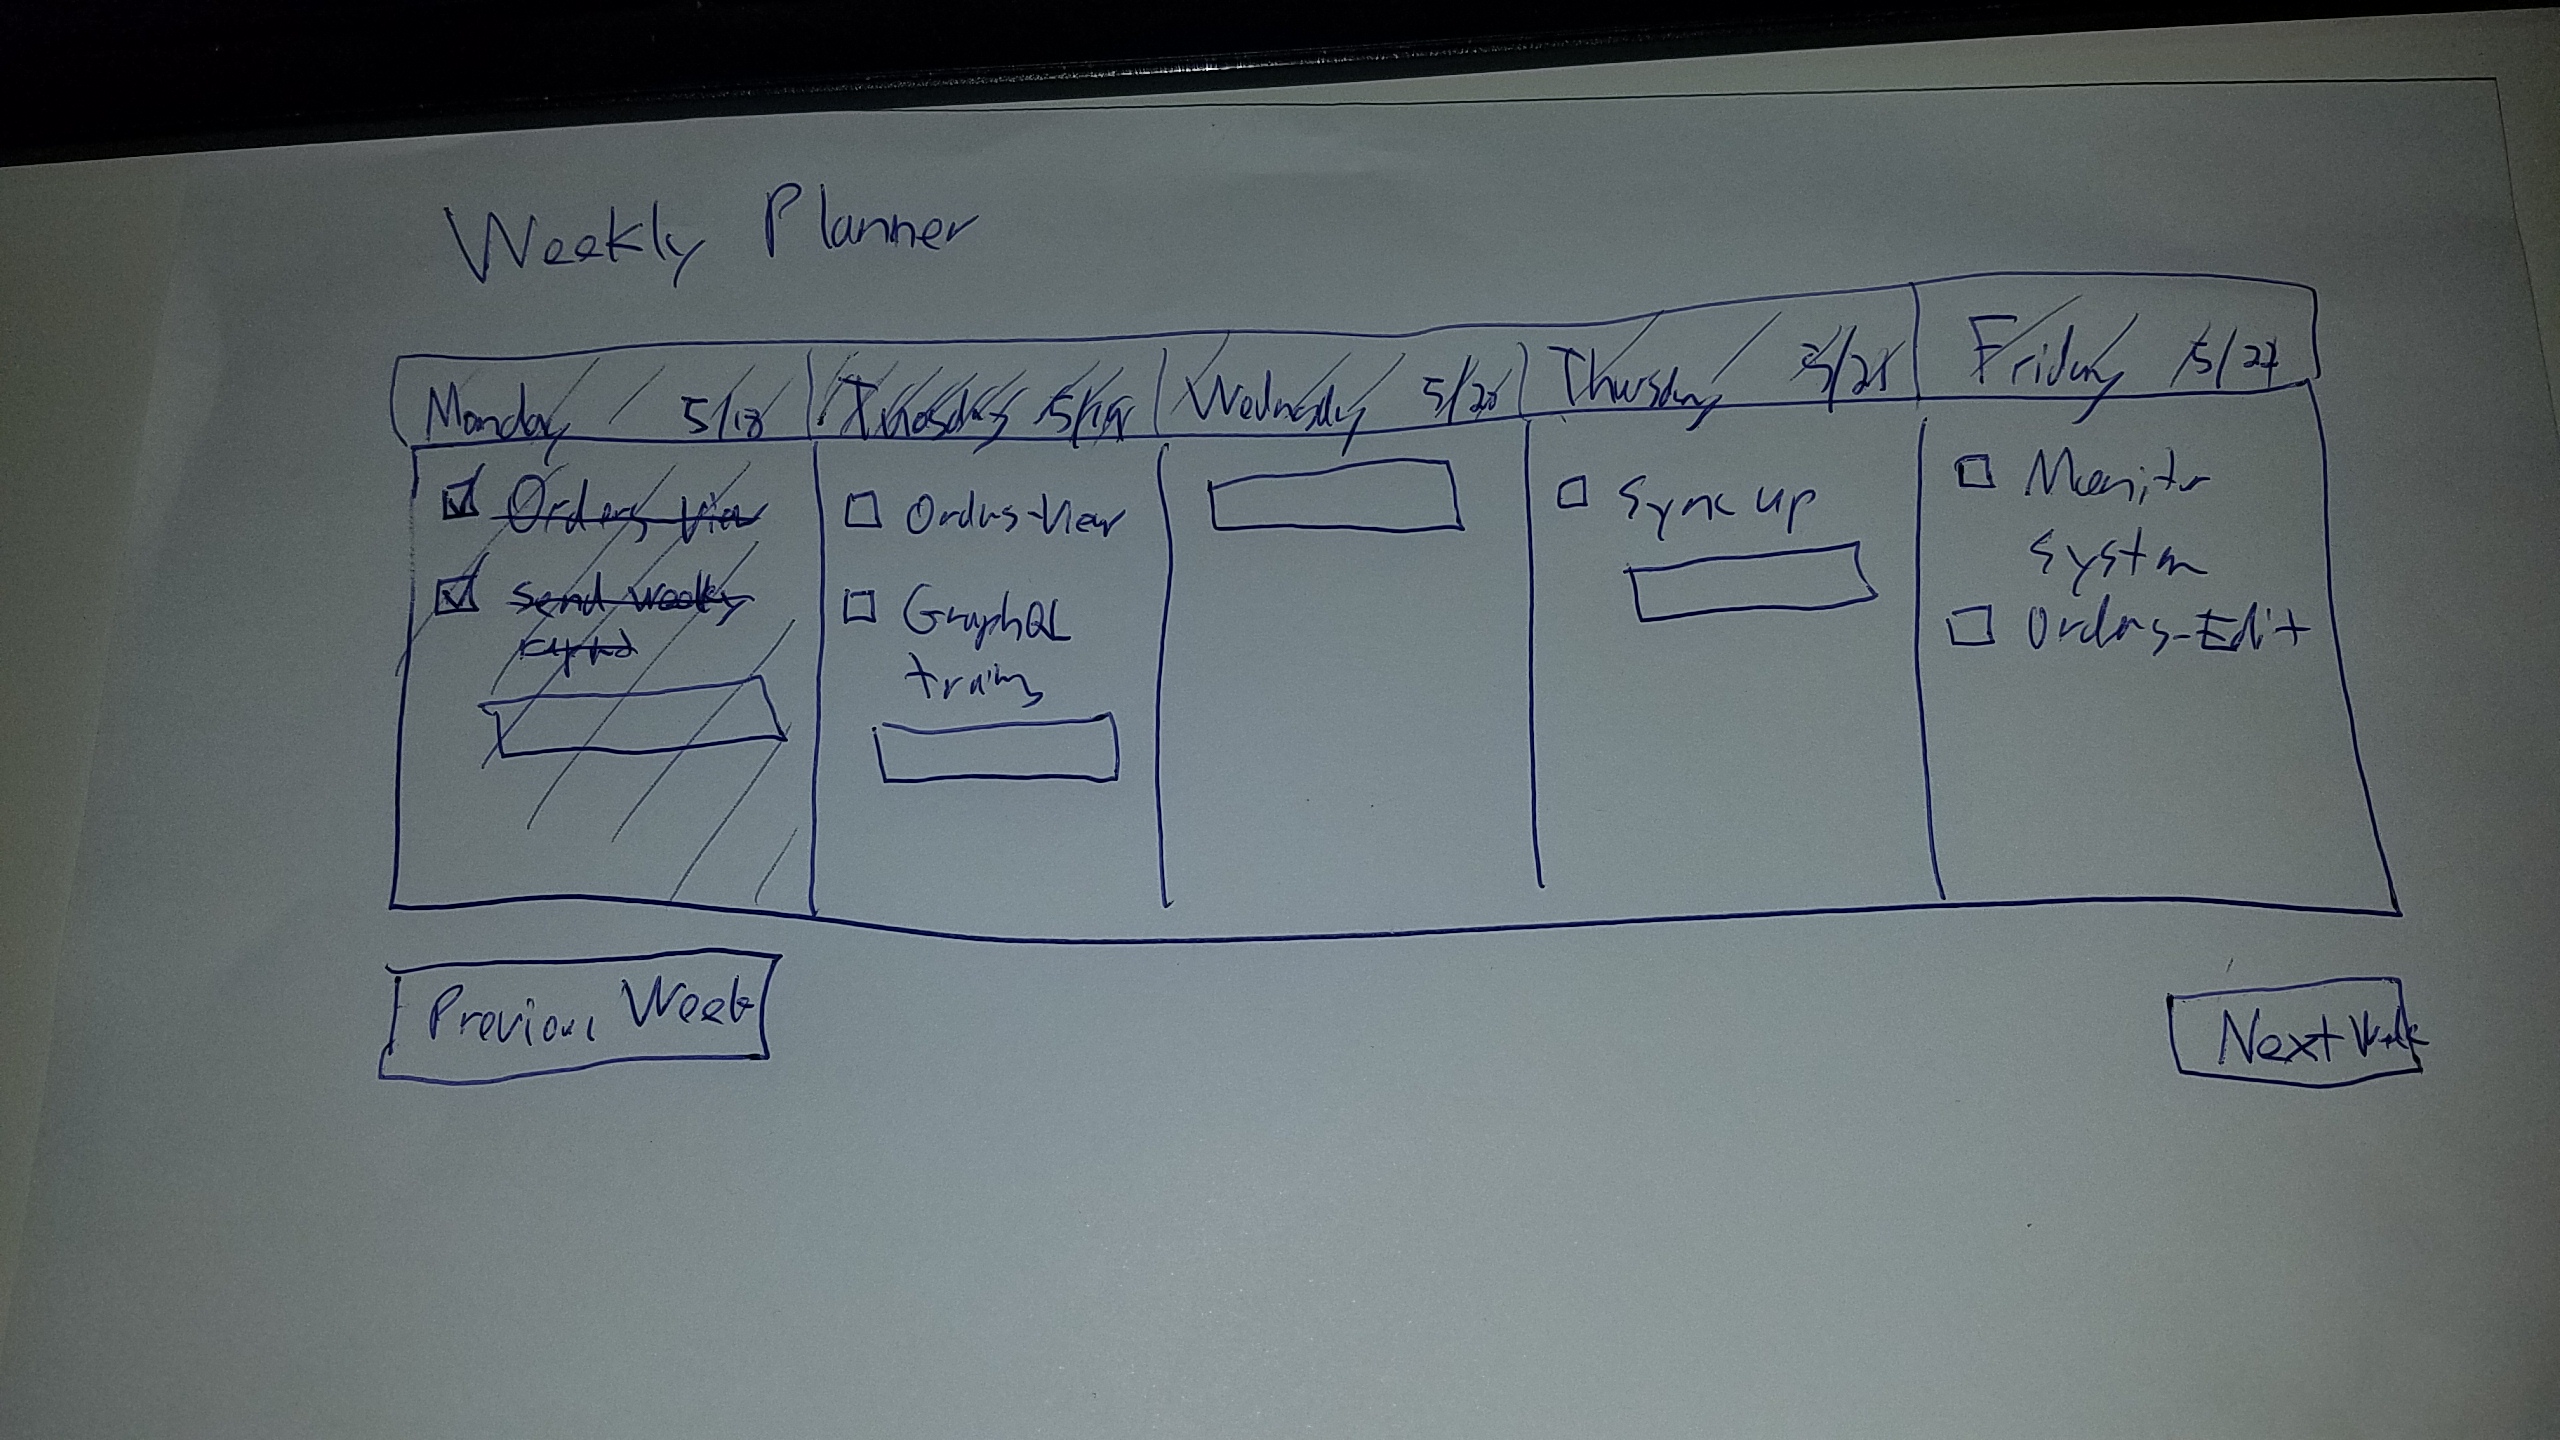 Weekly Planner
Monday 5/18
Tuesday 5/19
Wednesday 5/20
Thursday 5/21
Friday 5/22
Orders View
Send weekly
report
Orders-View
GraphQL
training
Sync up
Monitor
System
Orders-Edit
Previous Week
Next Week